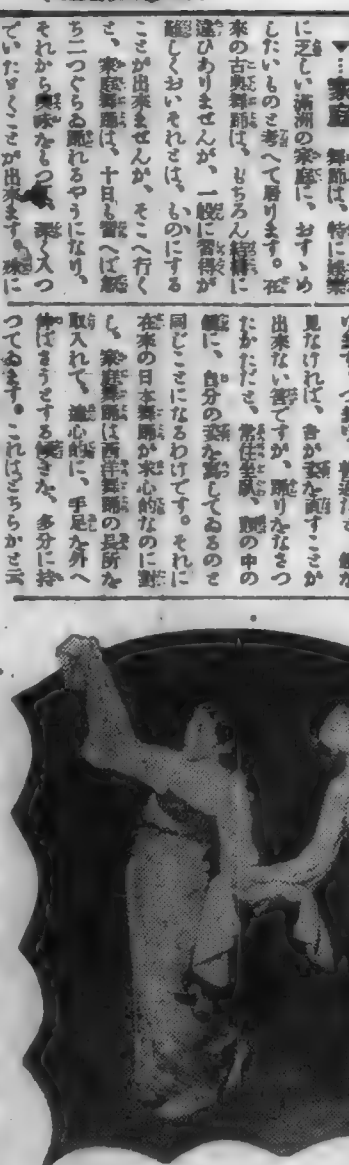 ▼…家庭 舞踊は、特に娯楽
に乏しい満洲の家庭に、おすゝめ
したいものと考へて居ります。在
来の古典舞踊は、もちろん結構に
違ひありませんが、一般に習得が
難しくおいそれとは、ものにする
ことが出来ませんが、そこへ行く
と、家庭舞踊は、十日も習へば
ち二つぐらゐ踊れるやうになり、
それから興味をもつて、深く入つ
ていたゞくことが出来ます。殊に
見なければ、自分が姿を直すことが
出来ない筈ですが、踊りをなさつ
たかただと、常住坐臥、頭の中の
鏡に、自分の姿を写してゐるのと
同じことになるわけです。それに
在来の日本舞踊が求心的なのに対
し、家庭舞踊は西洋舞踊の長所を
取入れて、遠心的に、手足を外へ
伸ばさうとする動きを、多分に持
つてゐます。これはどちらかと云